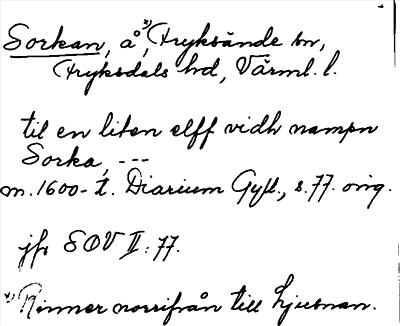 Sorkan, å x), Fryksände sn,
Fryksdals hd, Värml. l.
til en liten elff vidh nampn
Sorka, ---
m. 1600-t. Diarium Gyll., s. 77. orig.
jfr SOV II: 77.
x) Rinner norrifrån till Ljusnan.